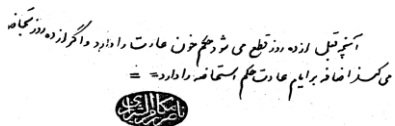 آنچه قبل از ده روز قطع می شود حکم خون عادت را دارد و اگر از ده روز تجاوز
می کند اضافه بر ایام عادت حکم استحاضه را دارد =